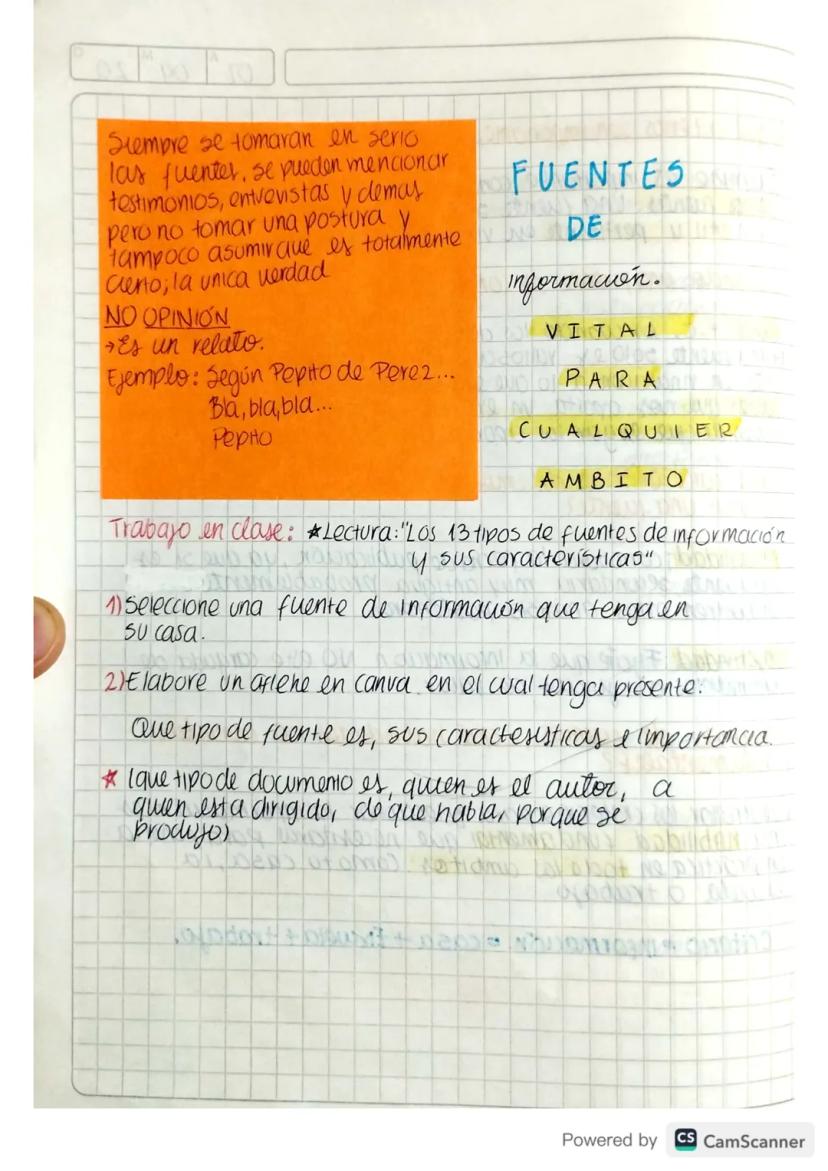 Siempre se tomaran en serio
las fuentes, se pueden mencionar
testimonios, entrevistas y demas
pero no tomar una postura y
tampoco asumir que es totalmente
cierto, la unica verdad
NO OPINIÓN
→Es un relato.
Ejemplo: Según Pepito de Perez...
Bla, bla, bla...
Pepito
FUENTES
DE
información.
VITAL
PARA
CUALQUIER
AMBITO
Trabajo en clase: *Lectura: "Los 13 tipos de fuentes de información
y sus características"
1) Seleccione una fuente de información que tenga en
su casa.
2) Elabore un afiche en canva en el cual tenga presente:
Que tipo de fuente es, sus características e importancia.
* (que tipo de documento es, quien es el autor, a
quien esta dirigido, de que habla, porque se
produjo)
Powered by CS CamScanner